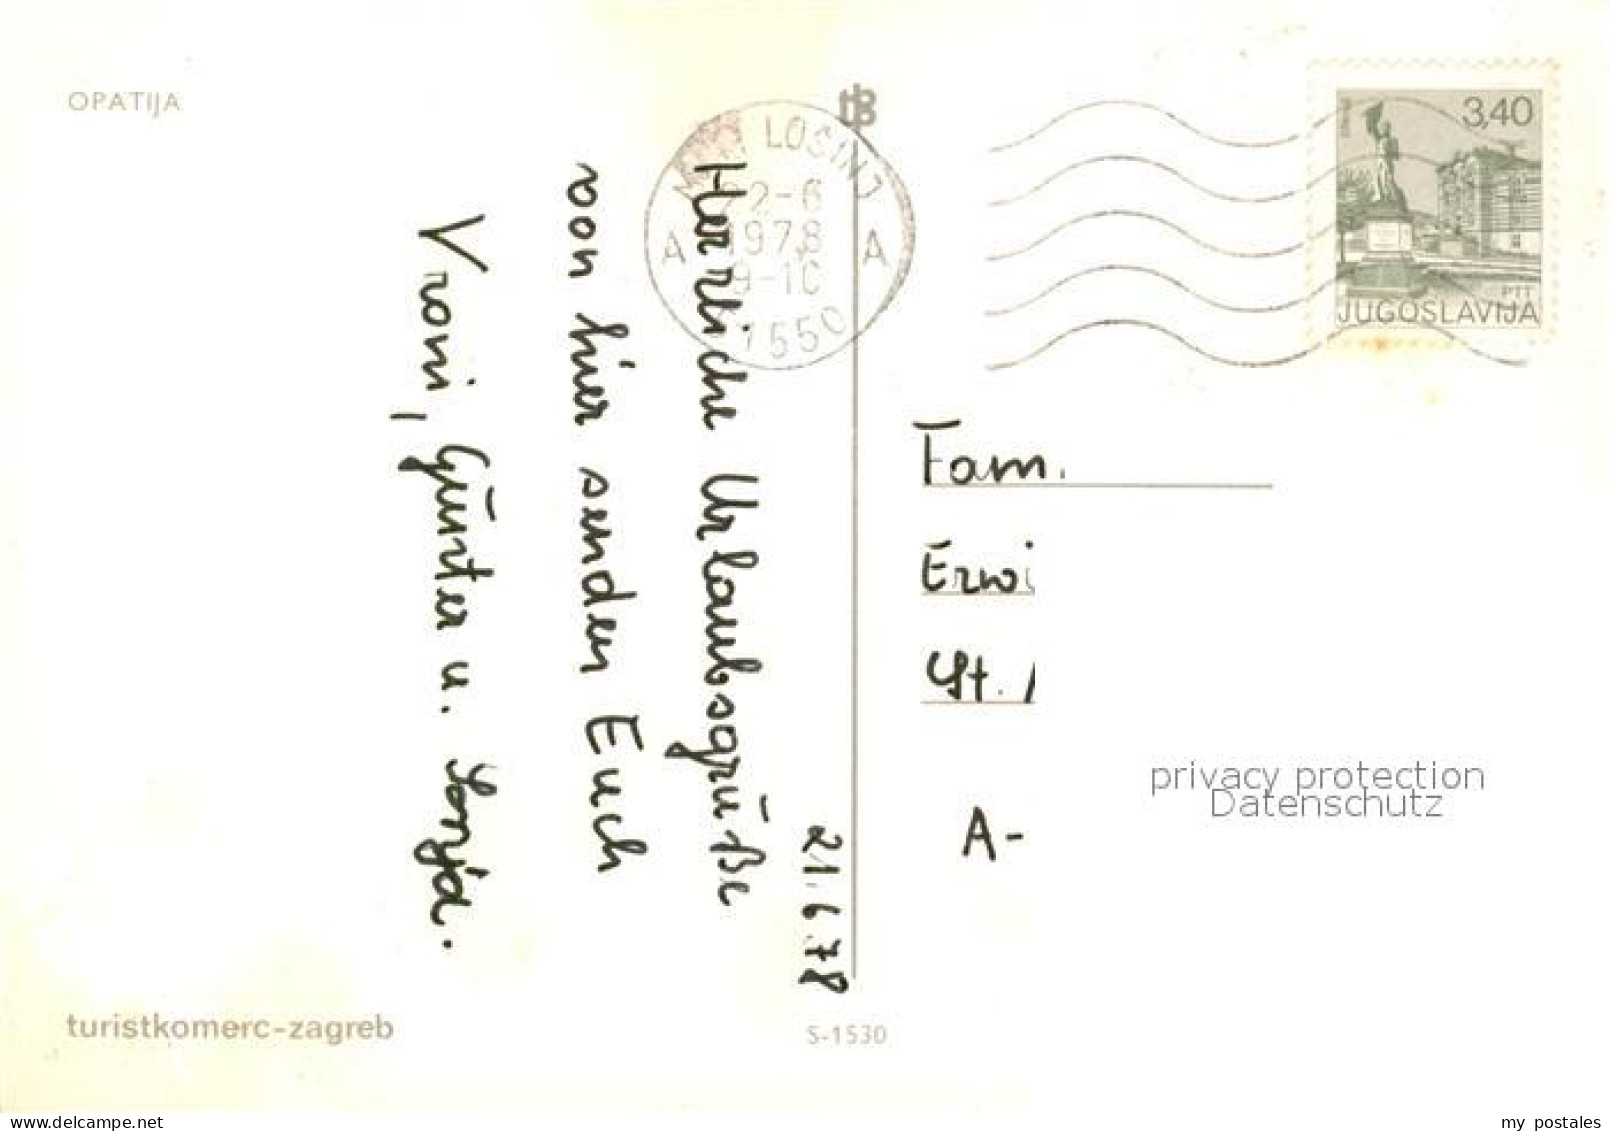 OPATIJA
LOŠINJ
2-6
1978
9-10
A A
1550
3,40
PTT
JUGOSLAVIJA
21.6.78
Herzliche Urlaubsgrüße
von hier senden Euch
Vroni, Günter u. Sonja.
Fam.
Erwi
St.
A-
privacy protection
Datenschutz
turistkomerc-zagreb
S-1530
www.delcampe.net
my_postales